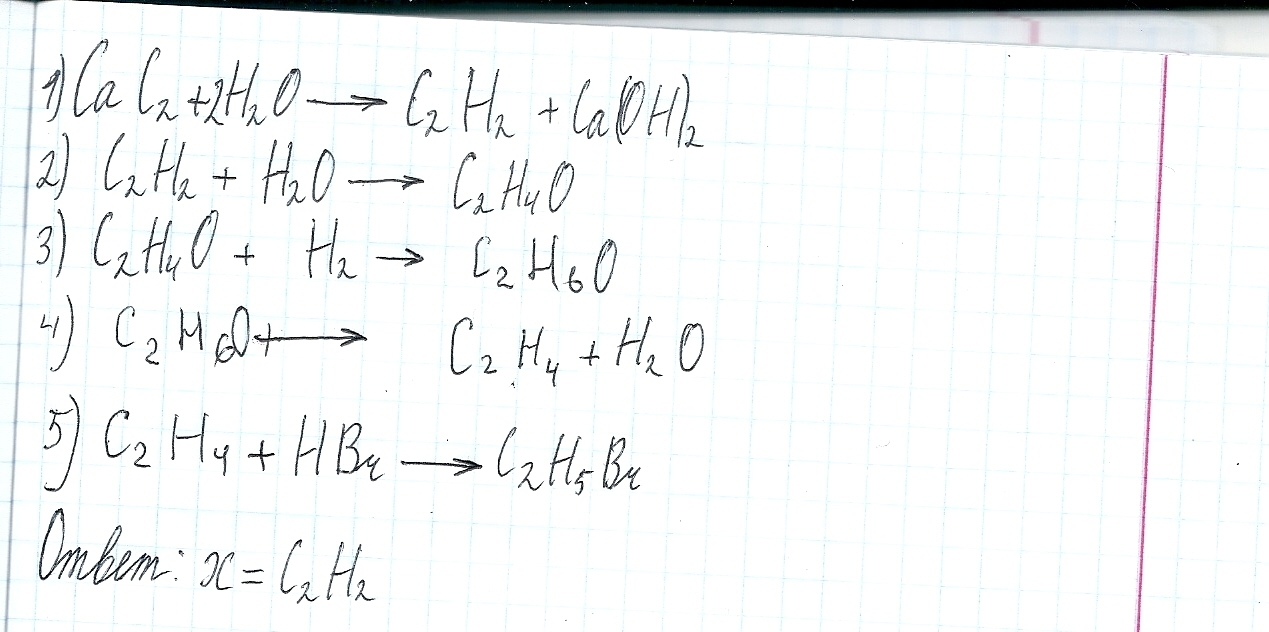 1) CaC₂ + 2H₂O → C₂H₂ + Ca(OH)₂
2) C₂H₂ + H₂O → C₂H₄O
3) C₂H₄O + H₂ → C₂H₆O
4) C₂H₆O + → C₂H₄ + H₂O
5) C₂H₄ + HBr → C₂H₅Br
Ответ: x = C₂H₂